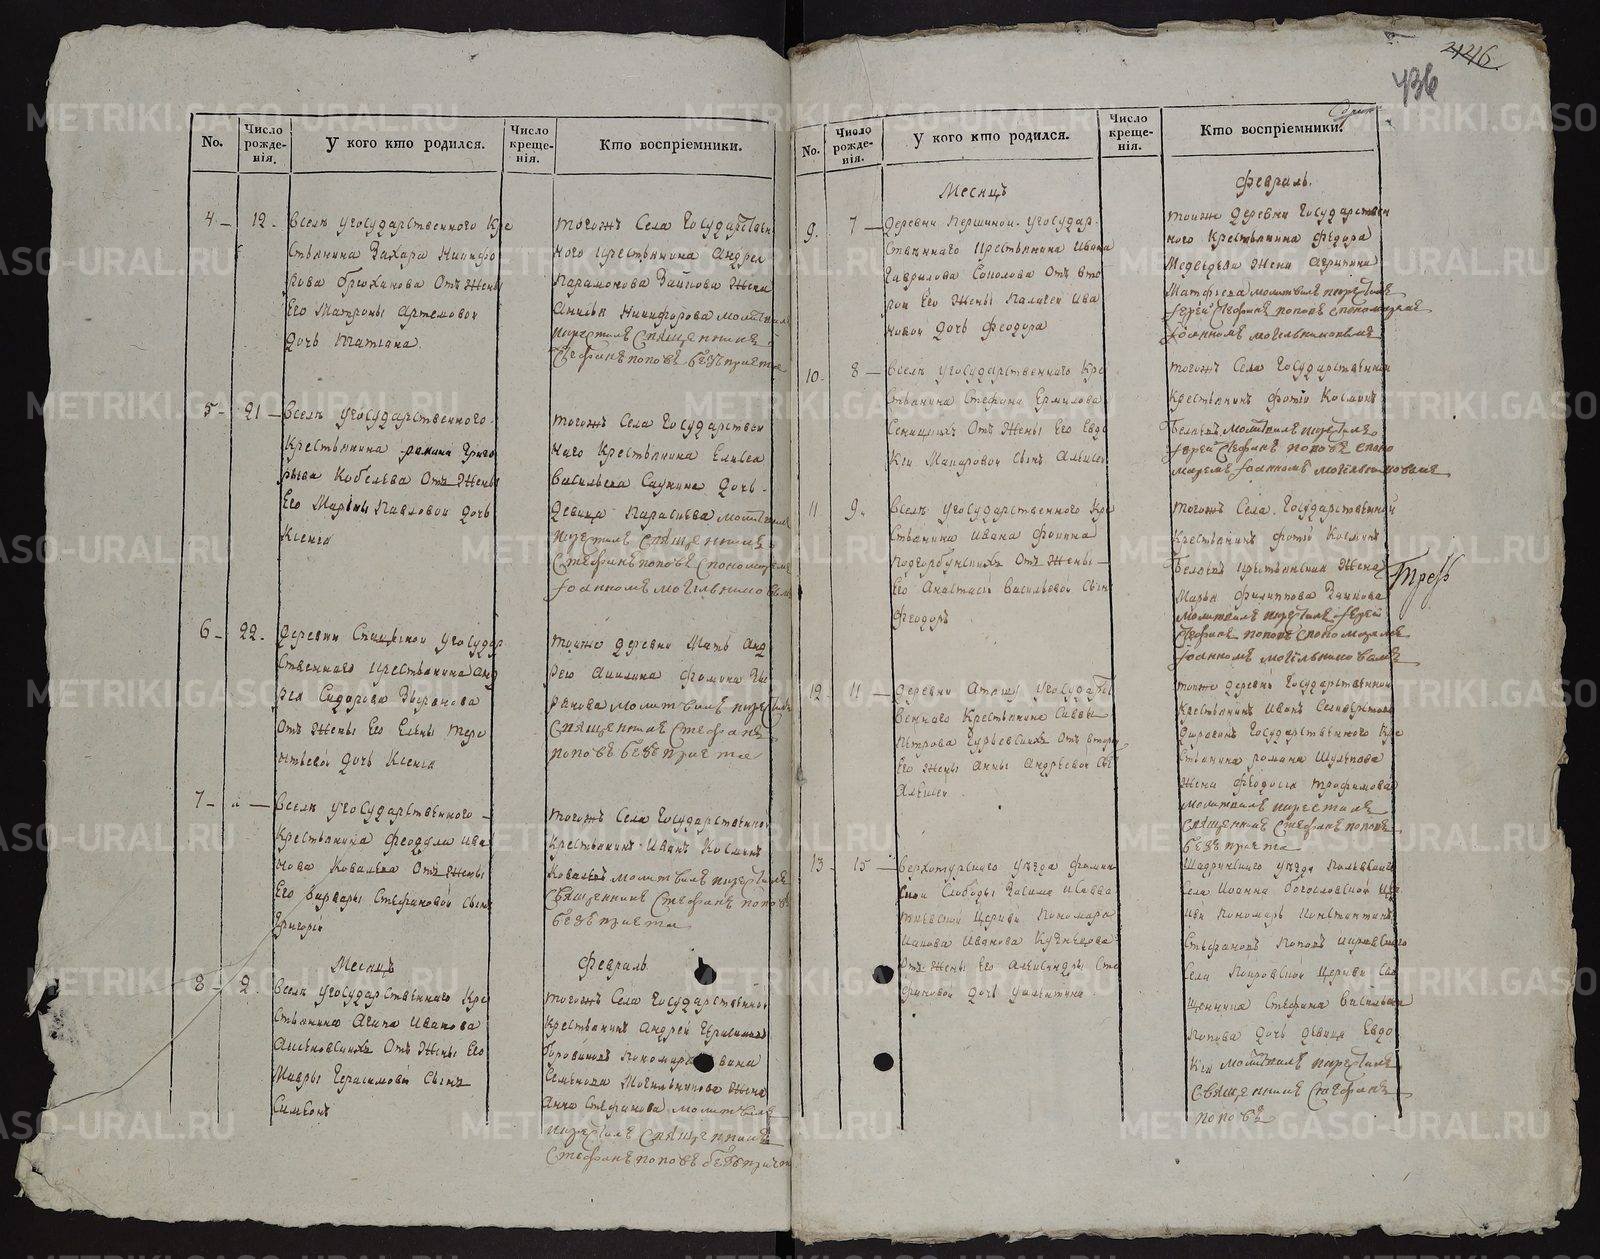 No.
Число рожде-нія.
У кого кто родился.
Число креще-нія.
Кто воспріемники.
4 — 12 - Вселѣ Угосударственного Кре
стьянина Захара Никифо
рова Брюханова Отъ Жены
Его Матроны Артемовой
Дочь Татіана.
тогожъ Села Государствен
ного крестьянина Андрея
Парамонова Жена
Никифорова молитвилъ
и крестилъ священникъ
Стефанъ Поповъ безъ причта
5 - 21 — Вселѣ Угосударственного
Крестьянина Григо
рьева Кобелева Отъ Жены
Его Марины Павловой Дочь
Ксенія
тогожъ Села Государствен
наго Крестьянина Елисея
Васильева Саунина Дочь
Девица Параскева молитвилъ
и крестилъ священникъ
Стефанъ Поповъ с пономаремъ
Іоанномъ Могильниковымъ
6 - 22 - Деревни Угосудар
ственнаго крестьянина Анд
рея Сидорова Зырянова
Отъ Жены Его Елены Тере
нтьевой Дочь Ксенія
тоиже деревни Мать Анд
рею Акилина Фомина Зы
рянова молитвилъ и крестилъ
священникъ Стефанъ
Поповъ безъ причта
7 — Вселѣ Угосударственного
Крестьянина Феодула Ива
нова Ковалева Отъ Жены
Его Варвары Стефановой Сынъ
Григорій
тогожъ Села Государственной
Крестьянинъ Иванъ Косминъ
Ковалевъ молитвилъ и крестилъ
Священникъ Стефанъ Поповъ
безъ причта
Месяцъ
Февраль
8 - 2 Вселѣ Угосударственнаго Кре
стьянина Агапа Иванова
Отъ Жены Его
Мавры Герасимовой Сынъ
Симеонъ
тогожъ Села Государственной
Крестьянинъ Андрей
Пономаря Ивана
Семенова Могильникова Жена
Анна Стефанова молитвилъ
и крестилъ священникъ
Стефанъ Поповъ безъ причта
436
No.
Число рожде-нія.
У кого кто родился.
Число креще-нія.
Кто воспріемники.
Месяцъ
Февраль.
9. 7 — Деревни Першиной Угосудар
ственнаго крестьянина Ивана
Гаврилова Соколова Отъ вто
рой Его Жены Пелагеи Ива
новой Дочь Феодора
тоиже деревни Государствен
ного Крестьянина Федора
Медведева Жена Агрипина
Матфеева молитвилъ и крестилъ
Іерей Стефанъ Поповъ с пономаремъ
Іоанномъ Могильниковымъ
10. 8 — Вселѣ Угосударственнаго Кре
стьянина Стефана Ермилова
Сеницыхъ Отъ Жены Его Евдо
кіи Макаровой Сынъ Алексей
тогожъ Села Государственной
Крестьянинъ Фотій Косминъ
Белыхъ молитвилъ и крестилъ
Іерей Стефанъ Поповъ с поно
маремъ Іоанномъ Могильниковымъ
11 9. Вселѣ Угосударственного Кре
стьянина Ивана Фокина
Подгорбунскихъ Отъ Жены
Его Анастасіи Васильевой Сынъ
Феодоръ
тогожъ Села Государственной
Крестьянинъ Фотій Косминъ
Белыхъ крестьянская Жена
Марья Филиппова
молитвилъ и крестилъ Іерей
Стефанъ Поповъ с пономаремъ
Іоанномъ Могильниковымъ
12 - 11 — Деревни Угосударст
веннаго Крестьянина Саввы
Петрова Гурьевскихъ Отъ второй
Его Жены Анны Андреевой Сынъ
Алексей
тоиже деревни Государственной
Крестьянинъ Иванъ
Государственнаго Кре
стьянина Романа Шулепова
Жена Феодосья Трофимова
молитвилъ и крестилъ
Священникъ Стефанъ Поповъ
безъ причта
13 - 15 — Верхотурскаго уезда Фомин
ской Слободы Зосимо и Савва
тіевской Церкви Пономаря
Иакова Иванова Кузнецова
Отъ Жены Его Александры Сте
фановой Дочь Валентина
Шадринскаго уезда
Села Іоанна Богословской Цер
кви Пономарь Константинъ
Стефановъ Поповъ
Села Покровской Церкви Свя
щенника Стефана Васильева
Попова Дочь девица Евдо
кія молитвилъ и крестилъ
Священникъ Стефанъ
Поповъ
METRIKI.GASO-URAL.RU